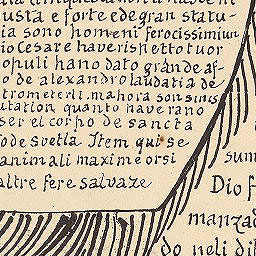 usta e forte ede gran statu-
ia sono homeni ferocissimiun
io Cesare haverispetto tuor
opuli hano dato grande af-
o de alexandro laudatia de
trometerli. ma hora son sms
utation quanto haverano
ser el corpo de sancta
fode svetla Item qui se
animali maxime orsi
altre fere salvaze
sum
Dio f
manzad
do neli dil